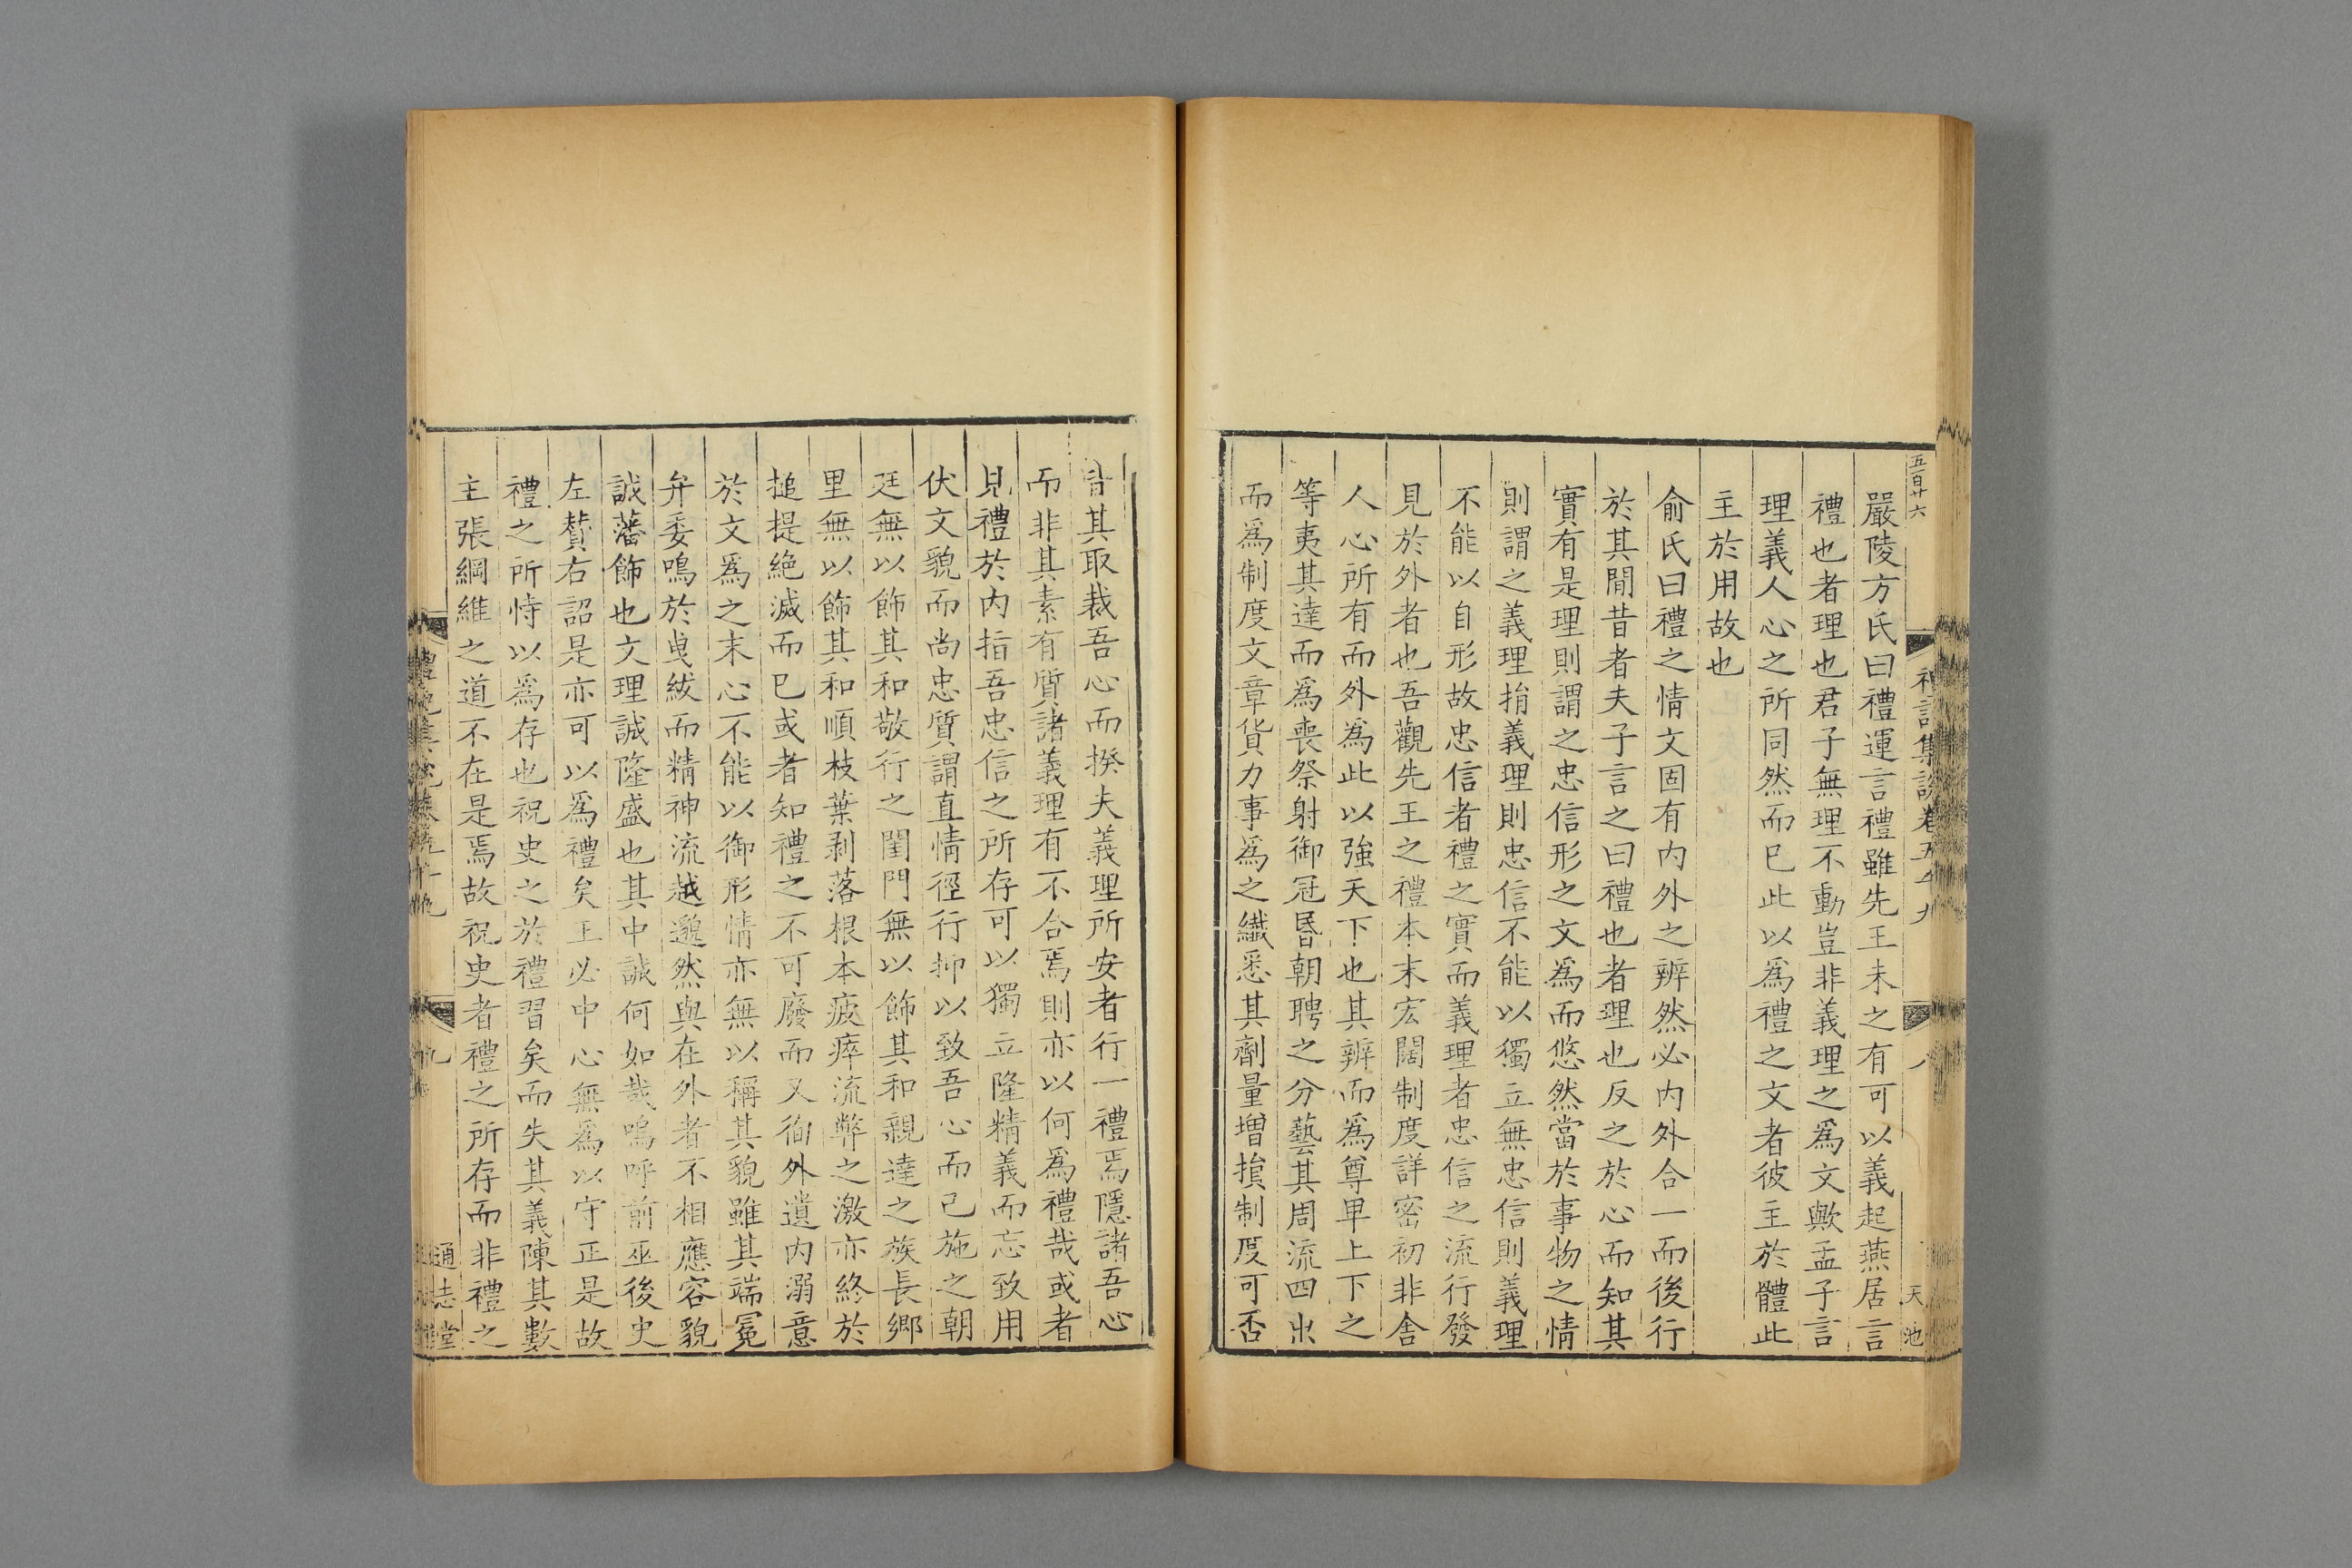 五百廿六
禮記集說卷五十九
八
天池
嚴陵方氏曰禮運言禮雖先王未之有可以義起燕居言
禮也者理也君子無理不動豈非義理之爲文歟孟子言
理義人心之所同然而已此以爲禮之文者彼主於體此
主於用故也
俞氏曰禮之情文固有内外之辨然必内外合一而後行
於其閒昔者夫子言之曰禮也者理也反之於心而知其
實有是理則謂之忠信形之文爲而悠然當於事物之情
則謂之義理捐義理則忠信不能以獨立無忠信則義理
不能以自形故忠信者禮之實而義理者忠信之流行發
見於外者也吾觀先王之禮本末宏闊制度詳密初非舍
人心所有而外爲此以強天下也其辨而爲尊卑上下之
等夷其達而爲喪祭射御冠昬朝聘之分藝其周流四出
而爲制度文章貨力事爲之纎悉其劑量增損制度可否
皆其取裁吾心而揆夫義理所安者行一禮焉隱諸吾心
而非其素有質諸義理有不合焉則亦以何爲禮哉或者
見禮於内指吾忠信之所存可以獨立隆精義而忘致用
伏文貌而尚忠質謂直情徑行抑以致吾心而已施之朝
廷無以飾其和敬行之閨門無以飾其和親達之族長鄉
里無以飾其和順枝葉剥落根本疲瘁流弊之激亦終於
搥提絶滅而已或者知禮之不可廢而又徇外遺内溺意
於文爲之末心不能以御形情亦無以稱其貌雖其端冕
弁委鳴於曳紱而精神流越邈然與在外者不相應容貌
誠藩飾也文理誠隆盛也其中誠何如哉嗚呼前巫後史
左贊右詔是亦可以爲禮矣王必中心無爲以守正是故
禮之所恃以爲存也祝史之於禮習矣而失其義陳其數
主張綱維之道不在是焉故祝史者禮之所存而非禮之
九
通志堂